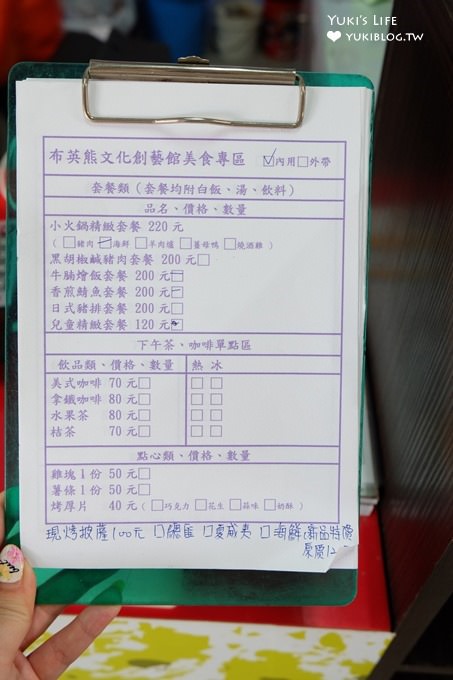 YUKI'S LIFE
YUKIBLOG.TW
布英熊文化創藝館美食專區 ☑內用□外帶
套餐類（套餐均附白飯、湯、飲料）
品名、價格、數量
小火鍋精緻套餐 220 元
（□豬肉□海鮮□羊肉爐□薑母鴨□燒酒雞）
黑胡椒鹹豬肉套餐 200 元□
牛腩燴飯套餐 200 元□
香煎鯖魚套餐 200 元□
日式豬排套餐 200 元□
兒童精緻套餐 120 元□
下午茶、咖啡單點區
飲品類、價格、數量 熱 冰
美式咖啡 70 元□ □ □
拿鐵咖啡 80 元□ □ □
水果茶 80 元□ □ □
桔茶 70 元□ □ □
點心類、價格、數量
雞塊 1 份 50 元□
薯條 1 份 50 元□
烤厚片 40 元（□巧克力□花生□蒜味□奶酥）
現烤披薩100元 □總匯 □夏威夷 □海鮮(新品特價
原價12